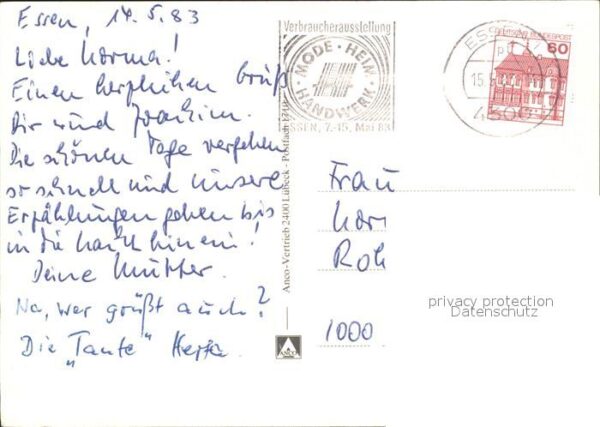 Essen, 14.5.83
Liebe Norma!
Einen herzlichen Gruß
Dir und Joachim.
Die schönen Tage vergehen
so schnell und unsere
Erzählungen gehen bis
in die Nacht hinein!
Deine Mutter.
Na, wer grüßt auch?
Die "Tante" Herta.
Anco-Vertrieb 2400 Lübeck - Postfach 1710
ANCO
Verbraucherausstellung
MODE · HEIM
HANDWERK
ESSEN, 7.-15. Mai 83
ESSEN 1
15.5.
4300
DEUTSCHE BUNDESPOST
60
Frau
Nor
Rol
1000
privacy protection
Datenschutz